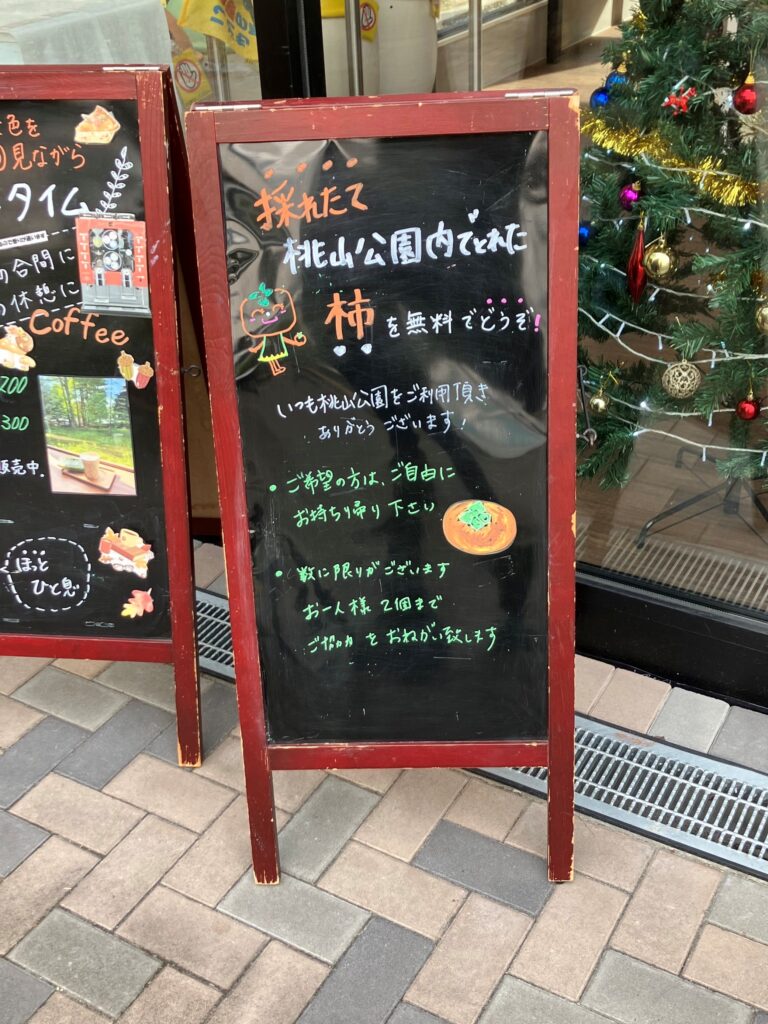 色を
見ながら
タイム
の合間に
の休憩に
Coffee
300
販売中.
ほっと
ひと息
採れたて
桃山公園内でとれた
柿を無料でどうぞ!
いつも桃山公園をご利用頂き
ありがとうございます!
・ご希望の方は、ご自由に
お持ち帰り下さい
・数に限りがございます
お一人様 2個まで
ご協力をおねがい致します